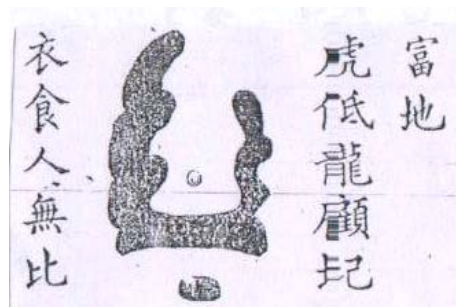 富地
虎低龍顧圮
衣食人無比